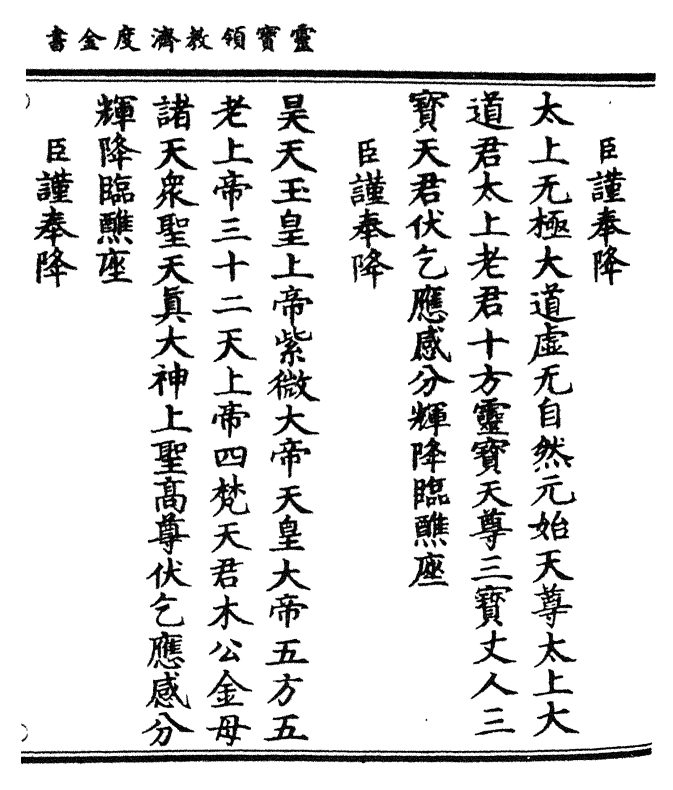 靈寶領教濟度金書
臣謹奉降
太上无極大道虛无自然元始天尊太上大
道君太上老君十方靈寶天尊三寶丈人三
寶天君伏乞應感分輝降臨醮座
臣謹奉降
昊天玉皇上帝紫微大帝天皇大帝五方五
老上帝三十二天上帝四梵天君木公金母
諸天衆聖天真大神上聖高尊伏乞應感分
輝降臨醮座
臣謹奉降